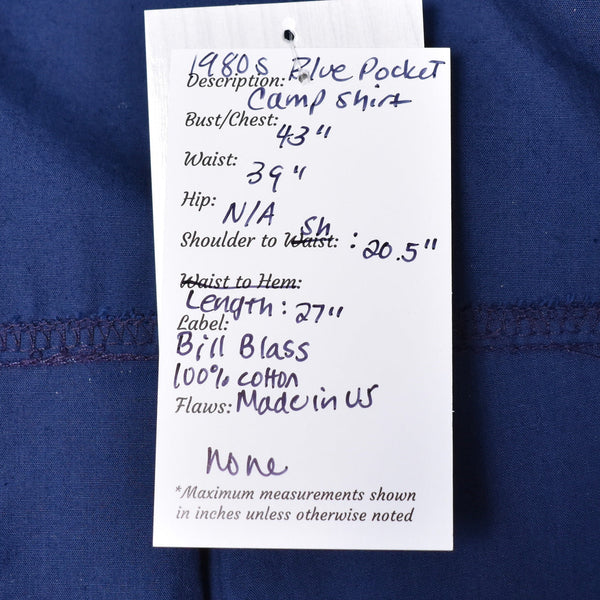 1980s Blue Pocket
Description:
Camp shirt
Bust/Chest:
43"
Waist:
39"
Hip:
N/A
Sh
Shoulder to Waist: : 20.5"
Waist to Hem:
Length: 27"
Label:
Bill Blass
100% cotton
Flaws: Made in US
None
*Maximum measurements shown
in inches unless otherwise noted